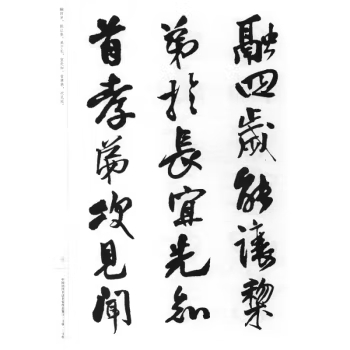 融四歲能讓棃
弟於長宜先知
首孝弟次見聞